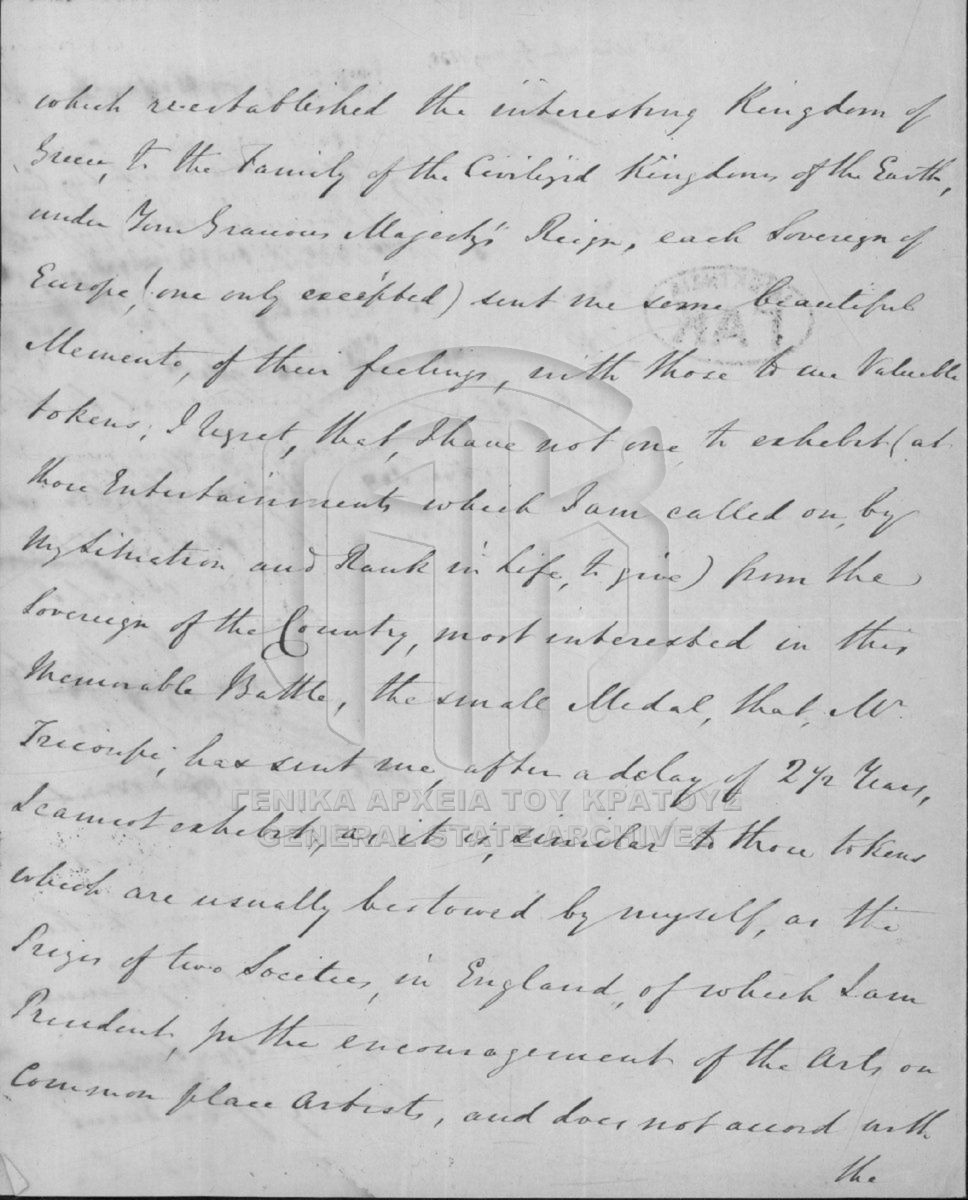 which re-established the interesting Kingdom of
Greece, to the Family of the Civilized Kingdoms of the Earth,
under Your Gracious Majesty's Reign, each Sovereign of
Europe, (one only excepted) sent me some beautiful
Memento, of their feelings, with those to me Valuable
tokens; I regret, that, I have not one to exhibit (at
those Entertainments which I am called on, by
My Situation and Rank in Life, to give) from the
Sovereign of the Country, most interested in this
Memorable Battle, the small Medal, that, Mr
Tricoupi, has sent me, after a delay of 2 1/2 Years,
ΓΕΝΙΚΑ ΑΡΧΕΙΑ ΤΟΥ ΚΡΑΤΟΥΣ
GENERAL STATE ARCHIVES
I cannot exhibit, as it is, similar to those tokens
which are usually bestowed by myself, as the
Prizes of two Societies, in England, of which I am
President, for the encouragement of the Arts, on
Common place Artists, and does not accord with
the